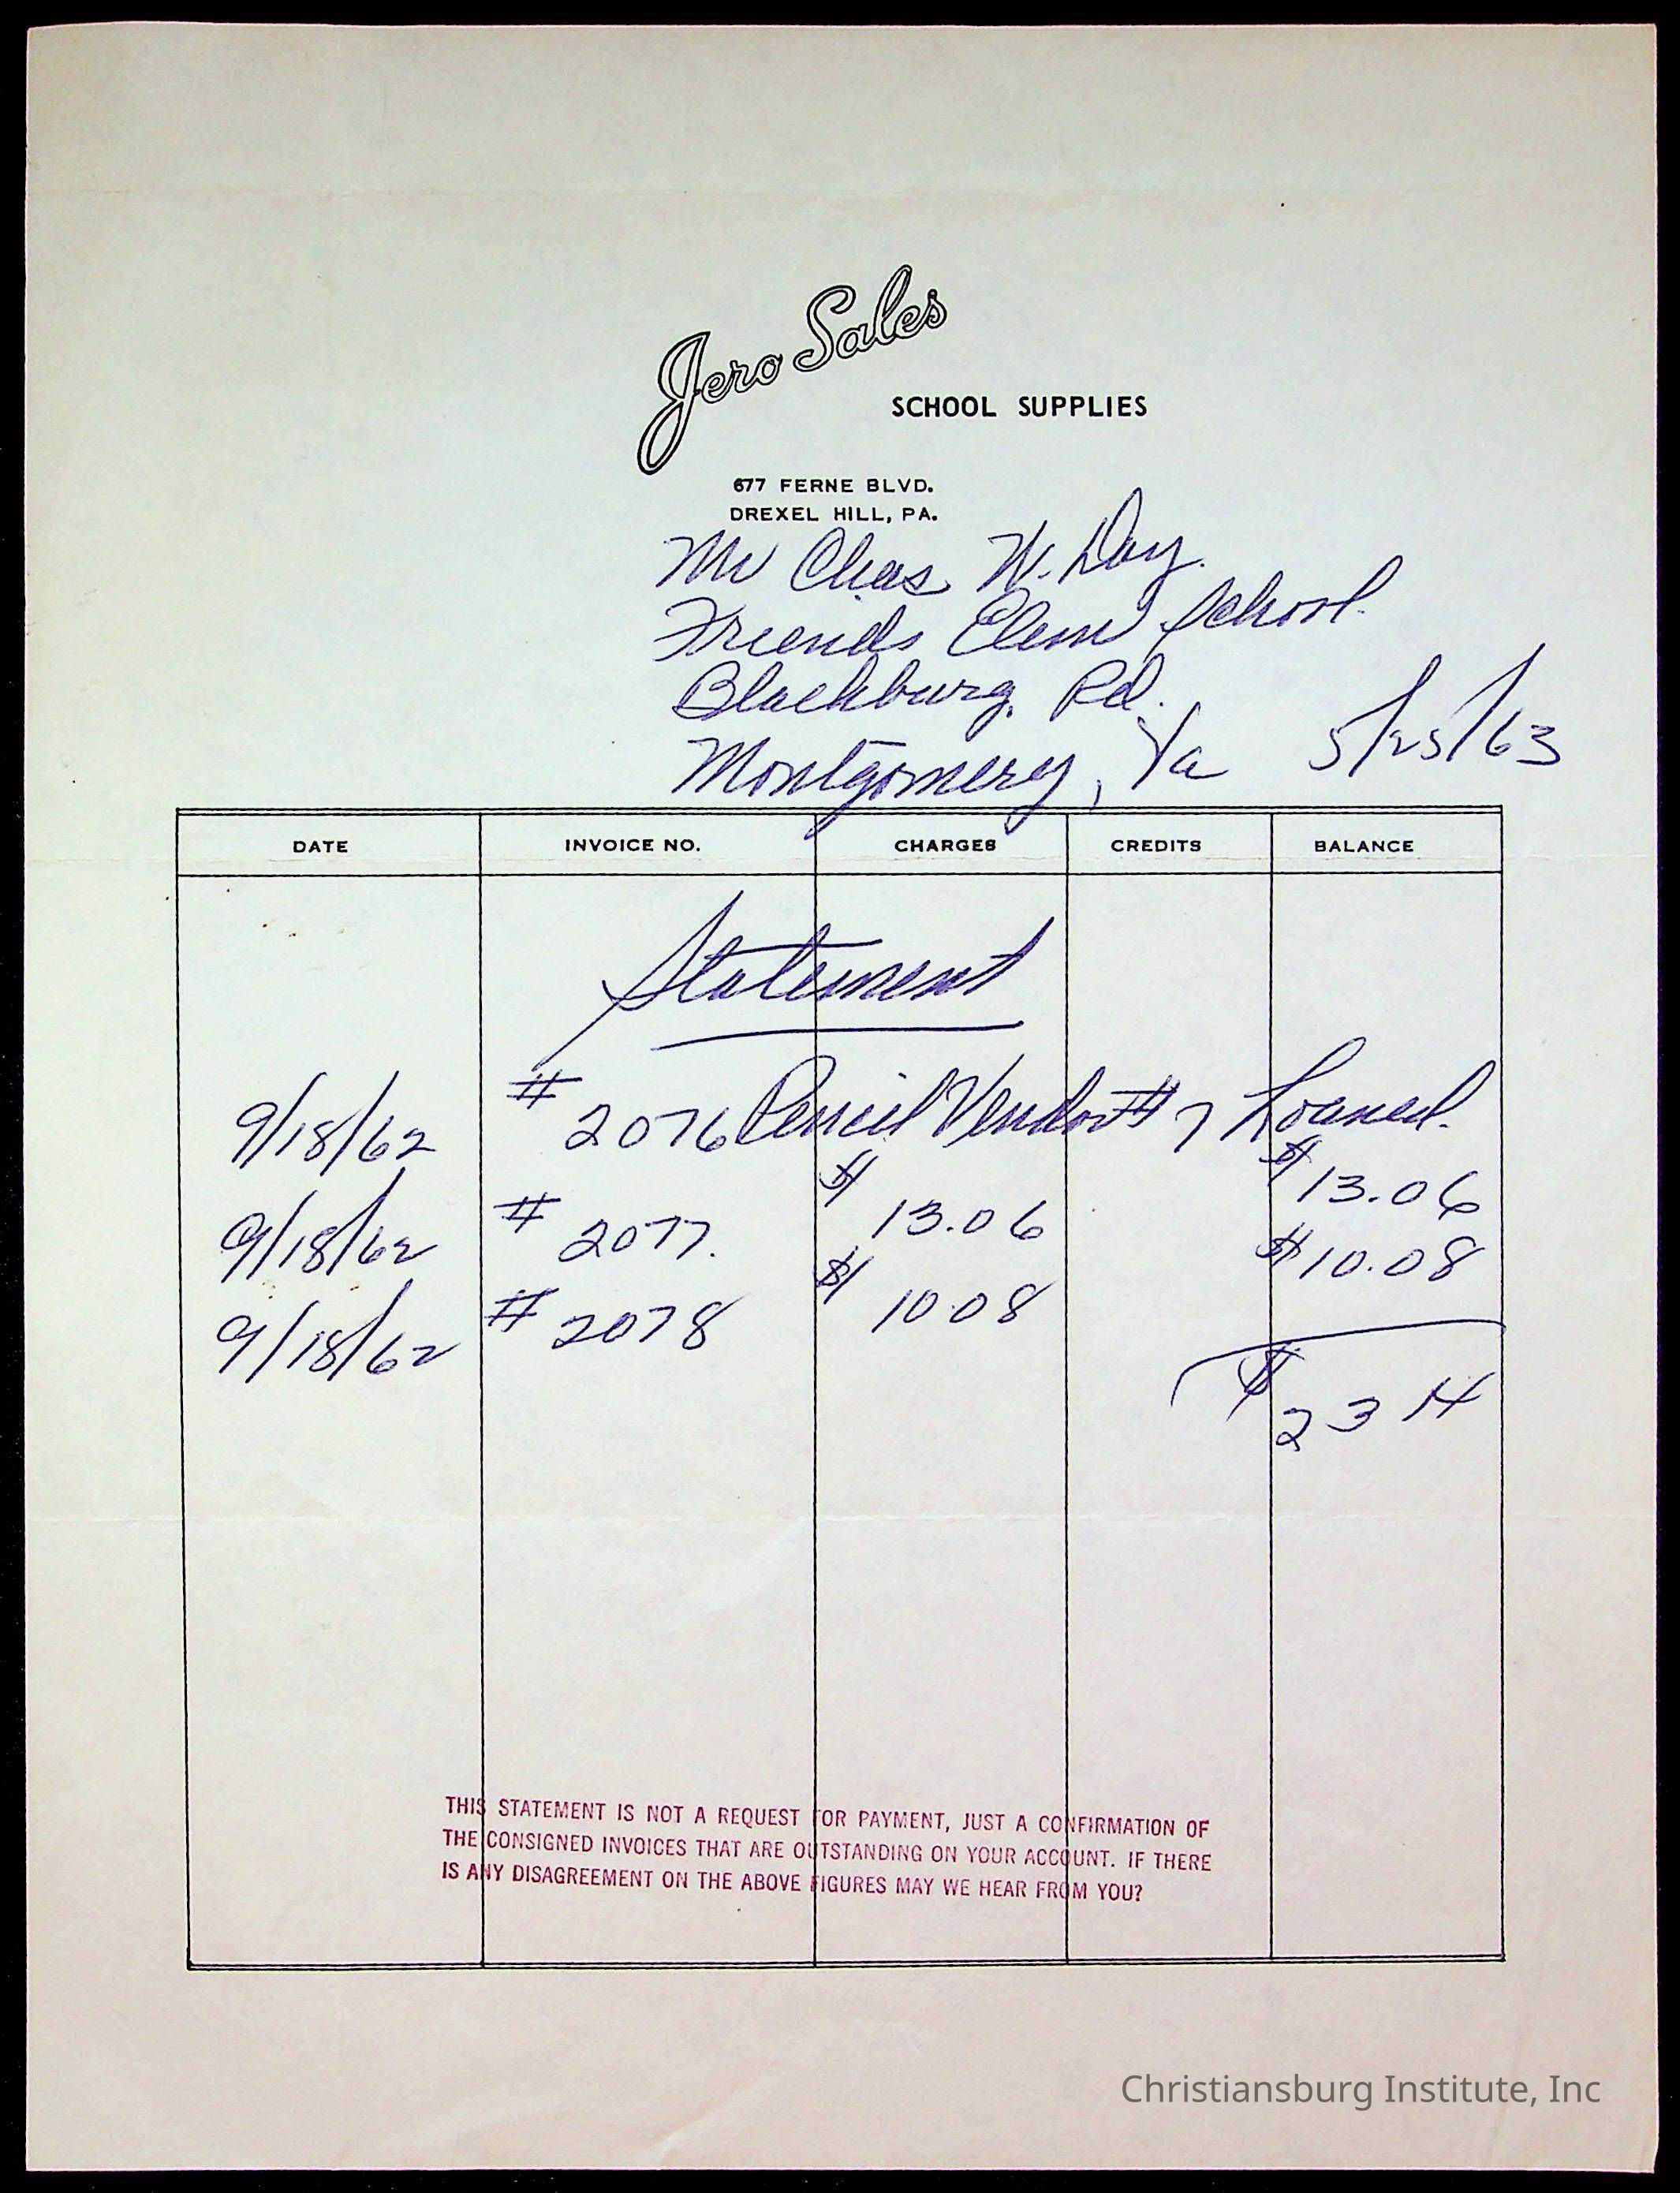 Jero Sales
SCHOOL SUPPLIES
677 FERNE BLVD.
DREXEL HILL, PA.
Mr Chas W. Day.
Friends Elem School.
Blackburg. Rd.
Montgomery, Va 5/25/63
DATE INVOICE NO. CHARGES CREDITS BALANCE
Statement
9/18/62 # 2076 Pencil Vendor # 7 Loaned.
9/18/62 # 2077. $ 13.06 $ 13.06
9/18/62 # 2078 $ 10 08 $ 10.08
$ 23 14
THIS STATEMENT IS NOT A REQUEST FOR PAYMENT, JUST A CONFIRMATION OF
THE CONSIGNED INVOICES THAT ARE OUTSTANDING ON YOUR ACCOUNT. IF THERE
IS ANY DISAGREEMENT ON THE ABOVE FIGURES MAY WE HEAR FROM YOU?
Christiansburg Institute, Inc